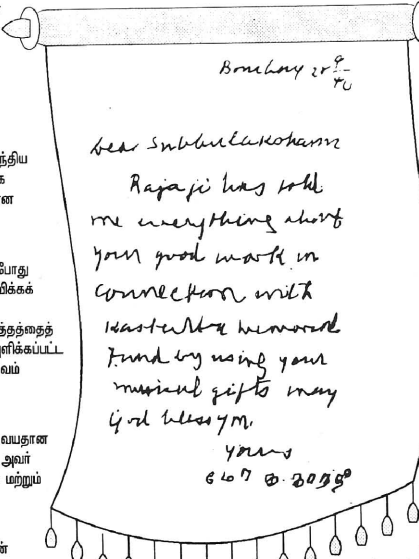 ந்திய
க
ன
போது
மிக்கக்
த்தத்தைத்
ளிக்கப்பட்ட
வம்
வயதான
அவர்
மற்றும்
ன்
Bombay
Dear Subbulakshmi
Rajaji has told
me everything about
your good work in
connection with
Kasturba Memorial
Fund by using your
musical gifts may
God bless you.
yours
மோ க. காந்தி